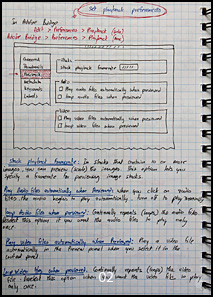 Set playback preferences
In Adobe Bridge
Edit > Preferences > Playback (win)
Adobe Bridge > Preferences > Playback (mac)
General
Thumbnails
Playback
Metadata
Keywords
Labels
Stacks
Stack playback framerate
Audio
Play audio files automatically when previewed
Loop audio files when previewed
Video
Play video files automatically when previewed
Loop video files when previewed
Stack playback framerate: In stacks that contain 10 or more
images, you can preview (scrub) the images. This option lets you
specify a framerate for previewing image stacks.
Play Audio files automatically when Previewed: when you click on audio
files the audio begins to play automatically. Turn off to play manually.
Loop Audio files when previewed: Continually repeats (loops) the audio file.
Deselect this option if you want the audio files to play only
once.
Play video files automatically when Previewed: Plays a video file
automatically in the Preview panel when you select it in the
content panel.
Loop video files when previewed: Continually repeats (loops) the video
file. Deselect this option when you want the video file to play
only once.
02